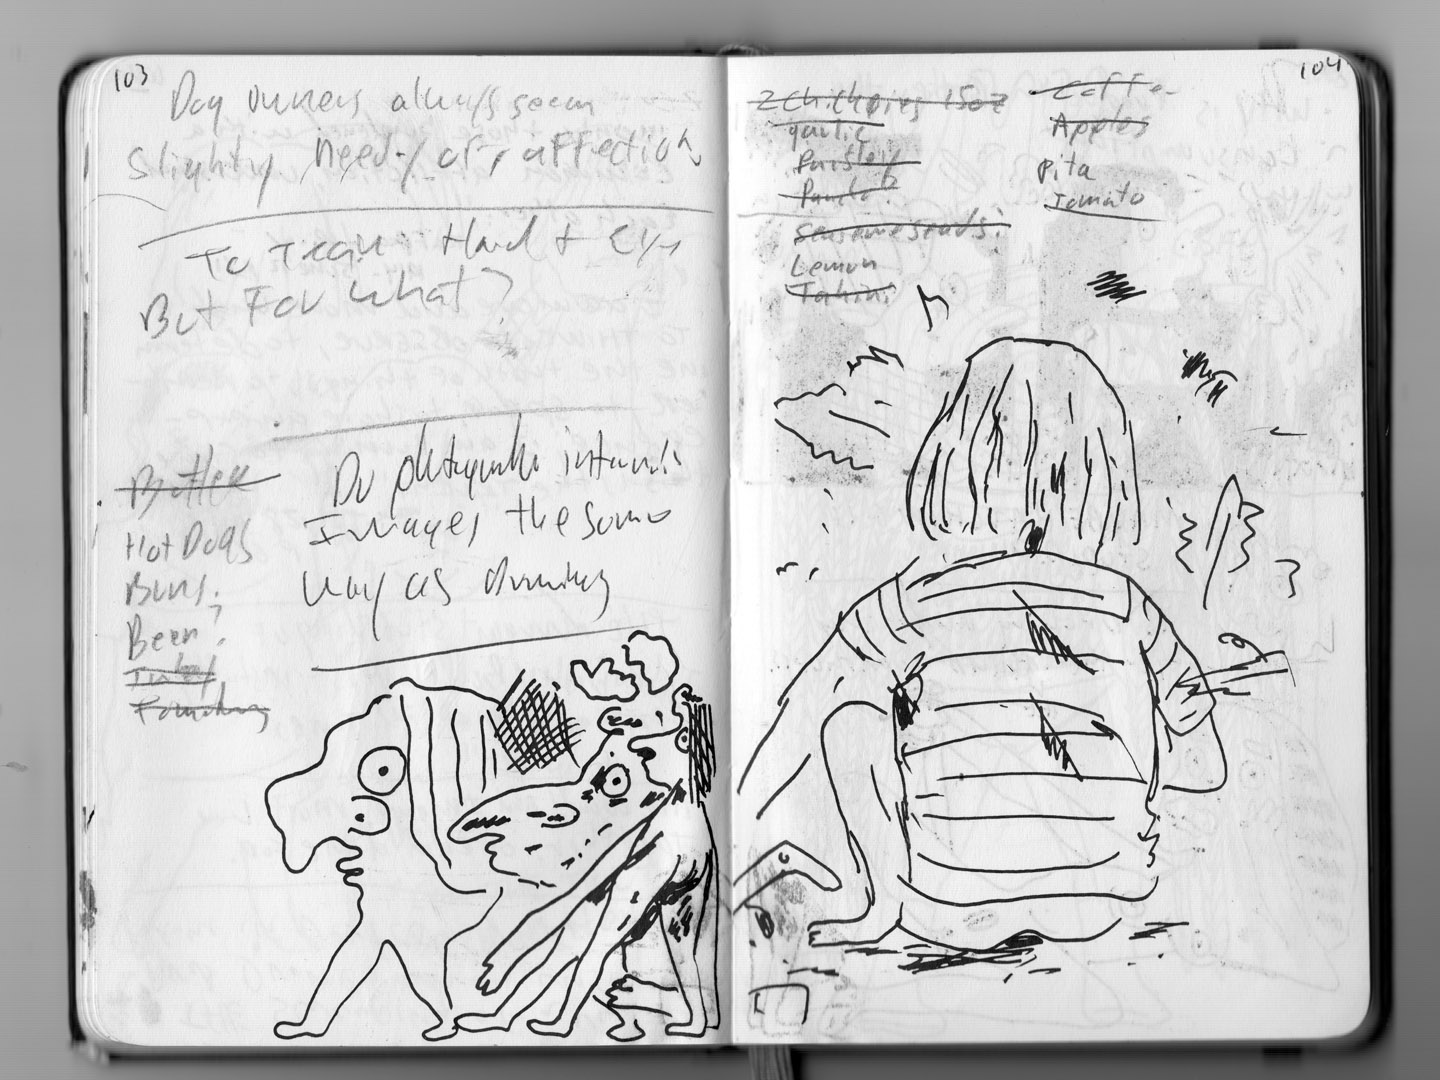 103
Dog owners always seem
Slightly needy for affection
To Train Hard +
But For what?
Butter
Hot Dogs
Buns
Beer?
Do photographs
Images the same
way as drawing
104
2 Chickpeas 15oz
garlic
Parsley
sesame seeds?
Lemon
Tahini
Coffee
Apples
Pita
Tomato